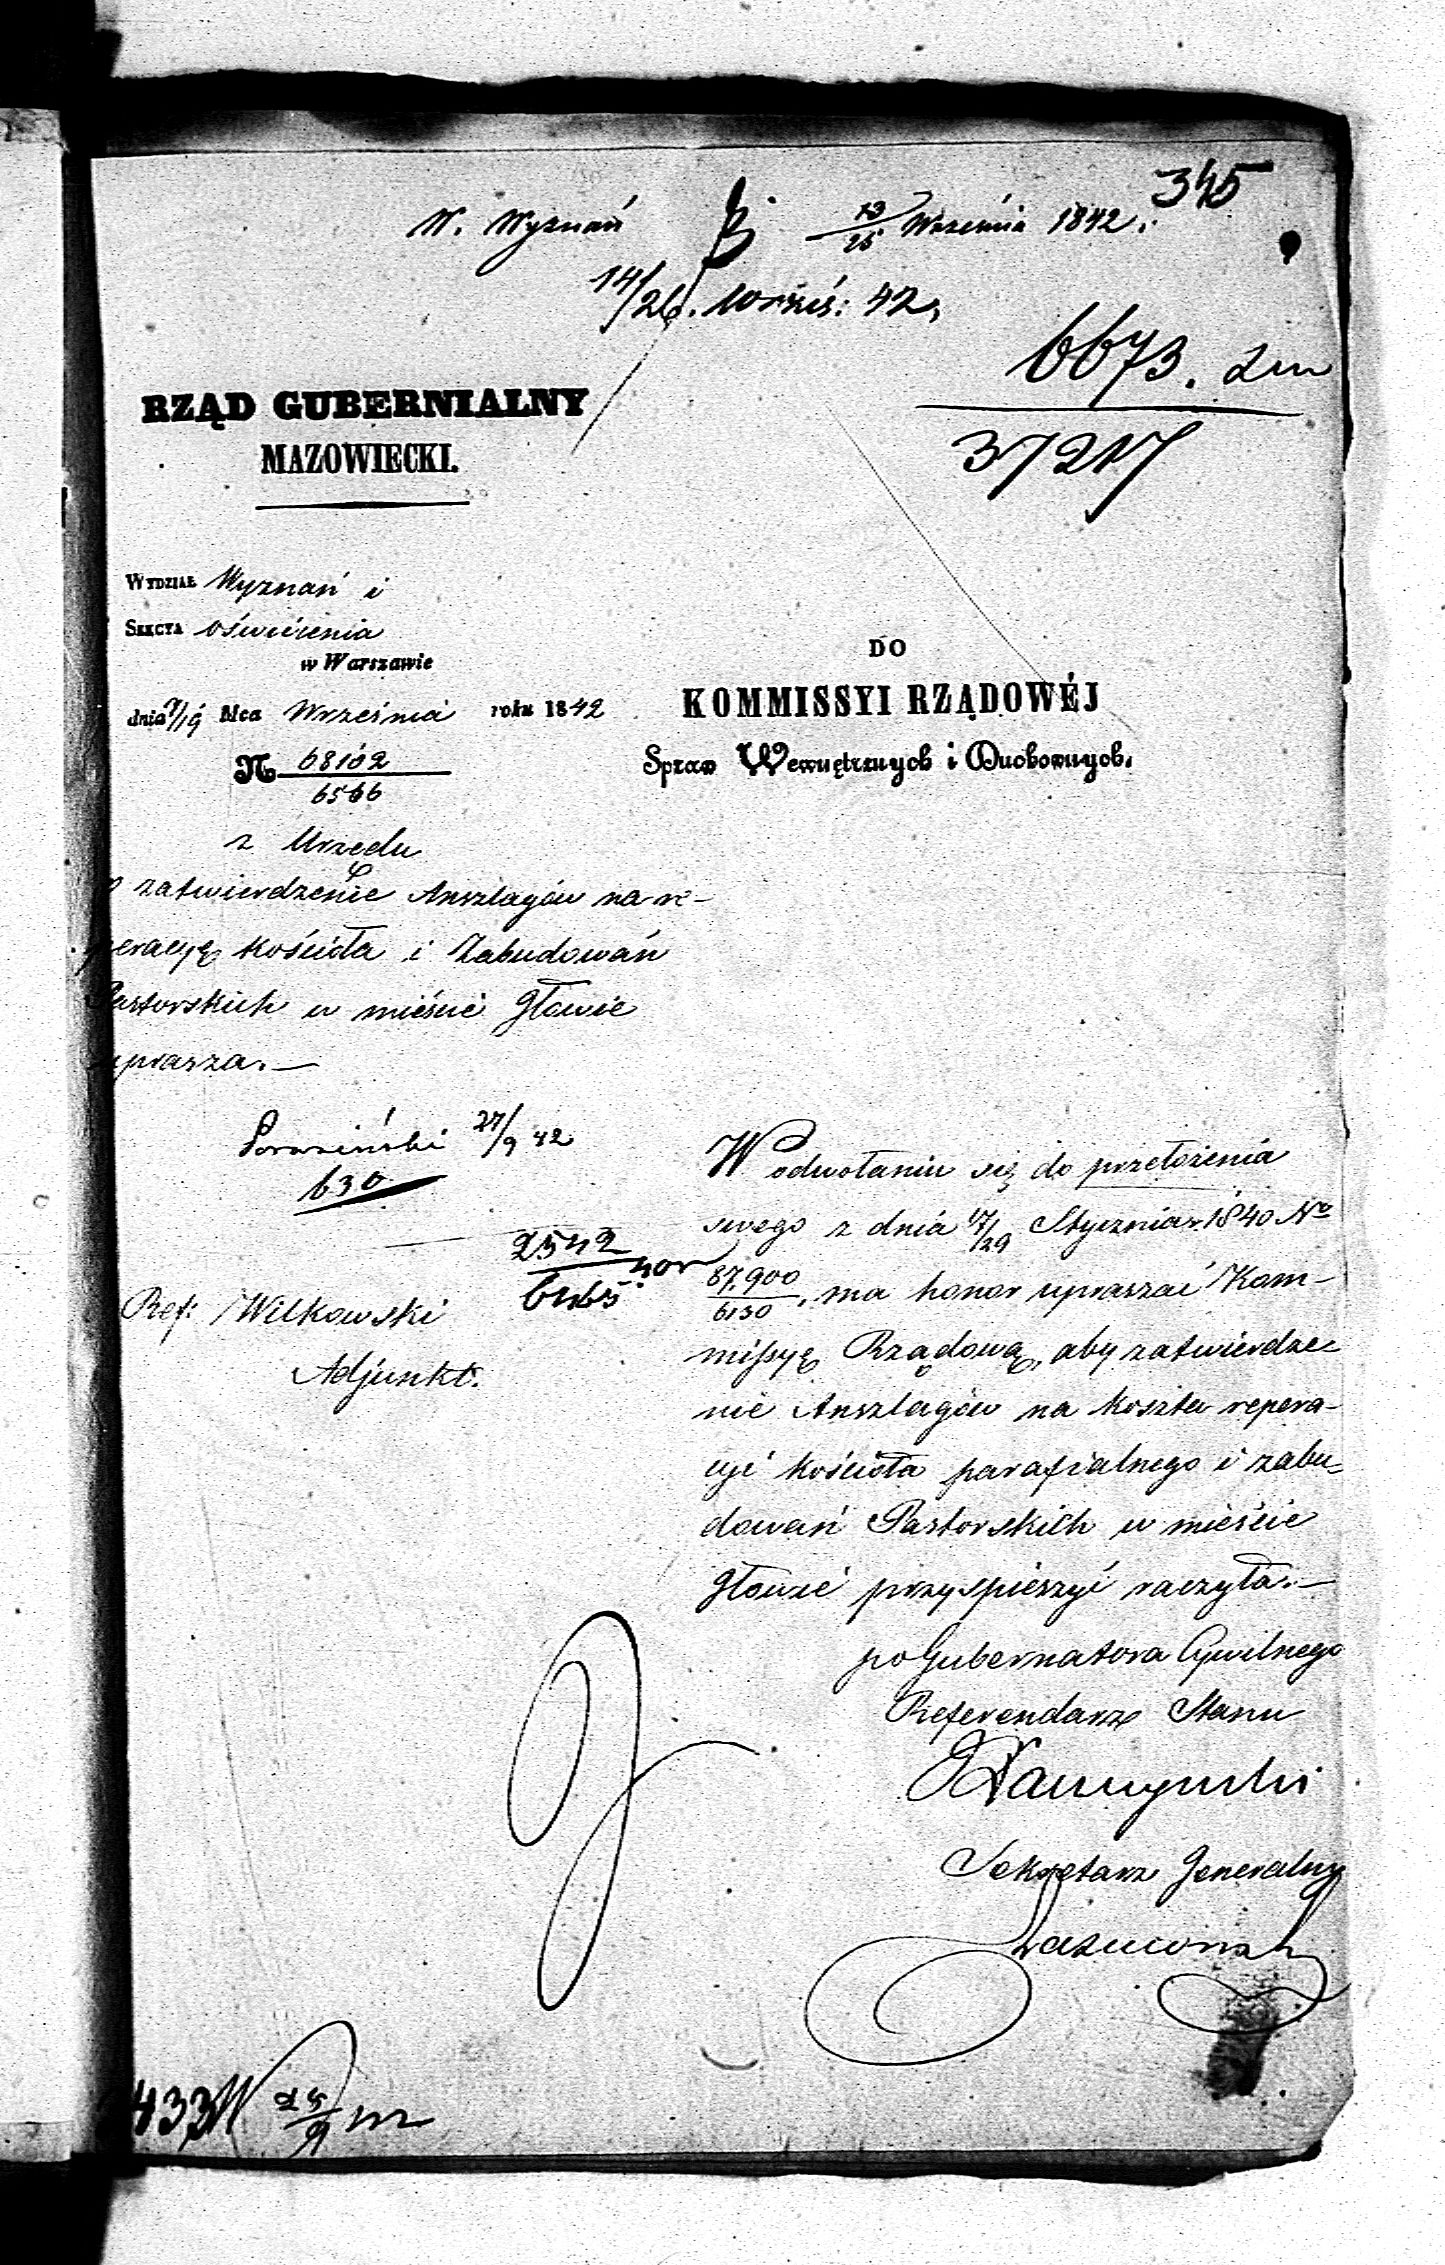 345
W. Wyznań 13/25 Września 1842.
14/26. Wrześ: 42,
6673.
37217
RZĄD GUBERNIALNY
MAZOWIECKI.
WYDZIAŁ Wyznań i
SEKCYA oświécenia
w Warszawie
dnia 7/19 Mca Września roku 1842
N 68102
6566
z Urzędu
o zatwierdzenie Anszlagów na re-
peracyę kościoła i Zabudowań
Pastorskich w mieście Iłowie
uprasza.—
27/9 42
630
2542
6465
Ref: Wilkowski
Adjunkt.
DO
KOMMISSYI RZĄDOWÉJ
Spraw Wewnętrznych i Duchownych.
W odwołaniu się do przełożenia
swego z dnia 17/29 Stycznia r. 1840 No
87,900
6130. ma honor upraszać Kom-
missyę Rządową, aby zatwierdze-
nie Anszlagów na koszta repera-
cyi kościoła parafialnego i zabu-
dowań Pastorskich w mieście
Iłowie przyspieszyć raczyła.—
po Gubernatora Cywilnego
Referendarz Stanu
Sekretarz Generalny
433
25/9